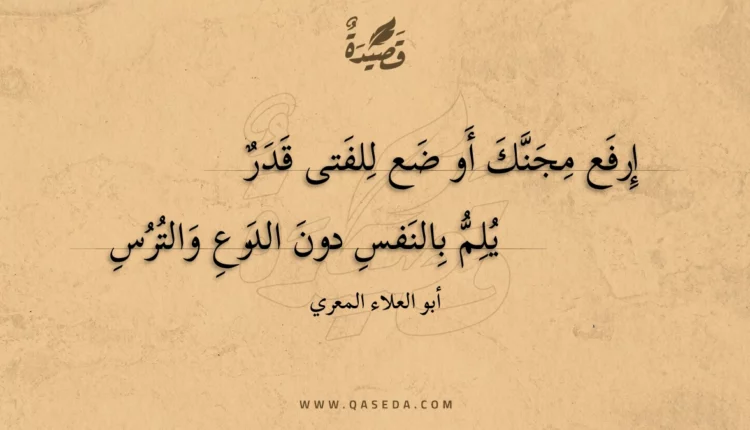 قَصِيدَةٌ
إِرفَع مِجَنَّكَ أَو ضَع لِلفَتى قَدَرٌ
يُلِمُّ بِالنَفسِ دونَ الدَوعِ وَالتُرُسِ
أبو العلاء المعري
WWW.QASEDA.COM